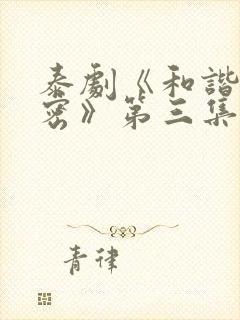 泰劇《和諧
密》第三集
青律